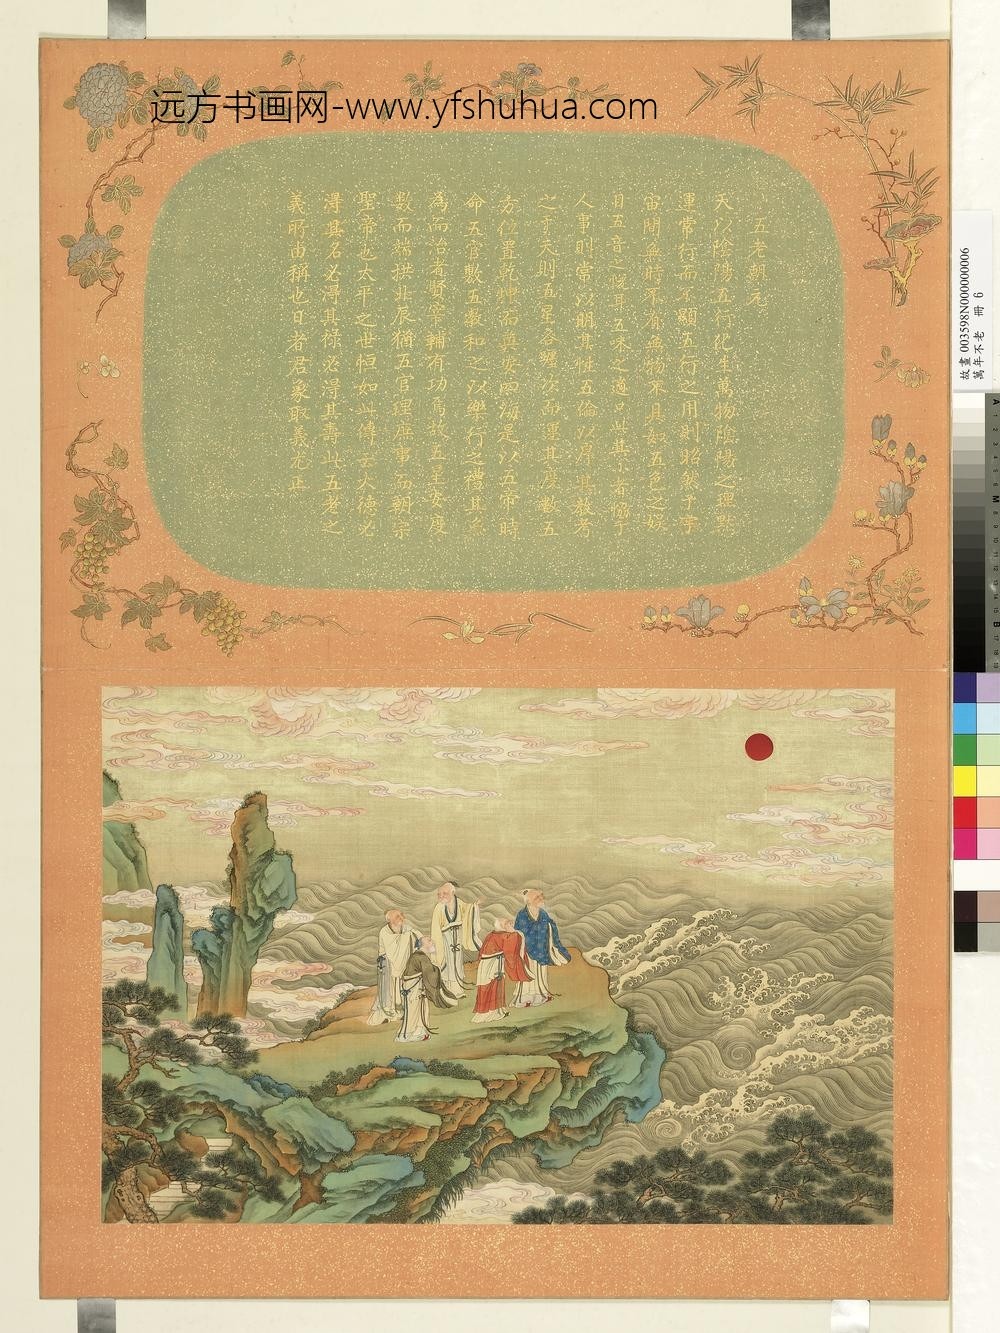 远方书画网-www.yfshuhua.com
五老朝元
天以陰陽五行化生萬物陰陽之理默
運常行而不顯五行之用則昭然于宇
宙間無時不有無物不具如五色之娛
目五音之悅耳五味之適口此其小者備于
人事則常以明其性五倫以厚其教考
之于天則五星各躔 而運其度數五
方位置乾坤而奠安四 是以五帝時
命五官敷五教和之以樂行之禮其無
為而治者賢宰輔有功焉故五星安度
數而端拱北辰猶五官理庶事而朝宗
聖帝也太平之世恒如此傳云大德必
得其名必得其祿必得其壽此五老之
義所由稱也日者君象取義尤正
故畫 003598N000000006
萬年不老 冊 6